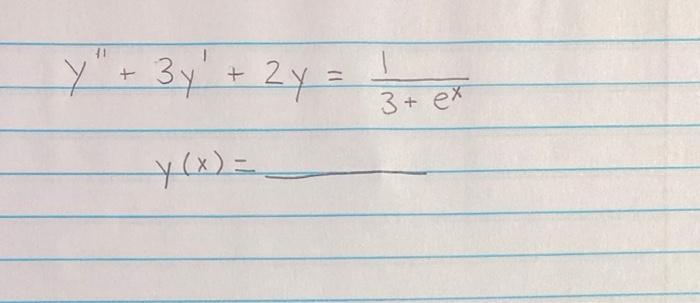 y" + 3y' + 2y = 1/(3 + eˣ)
y(x) = ______